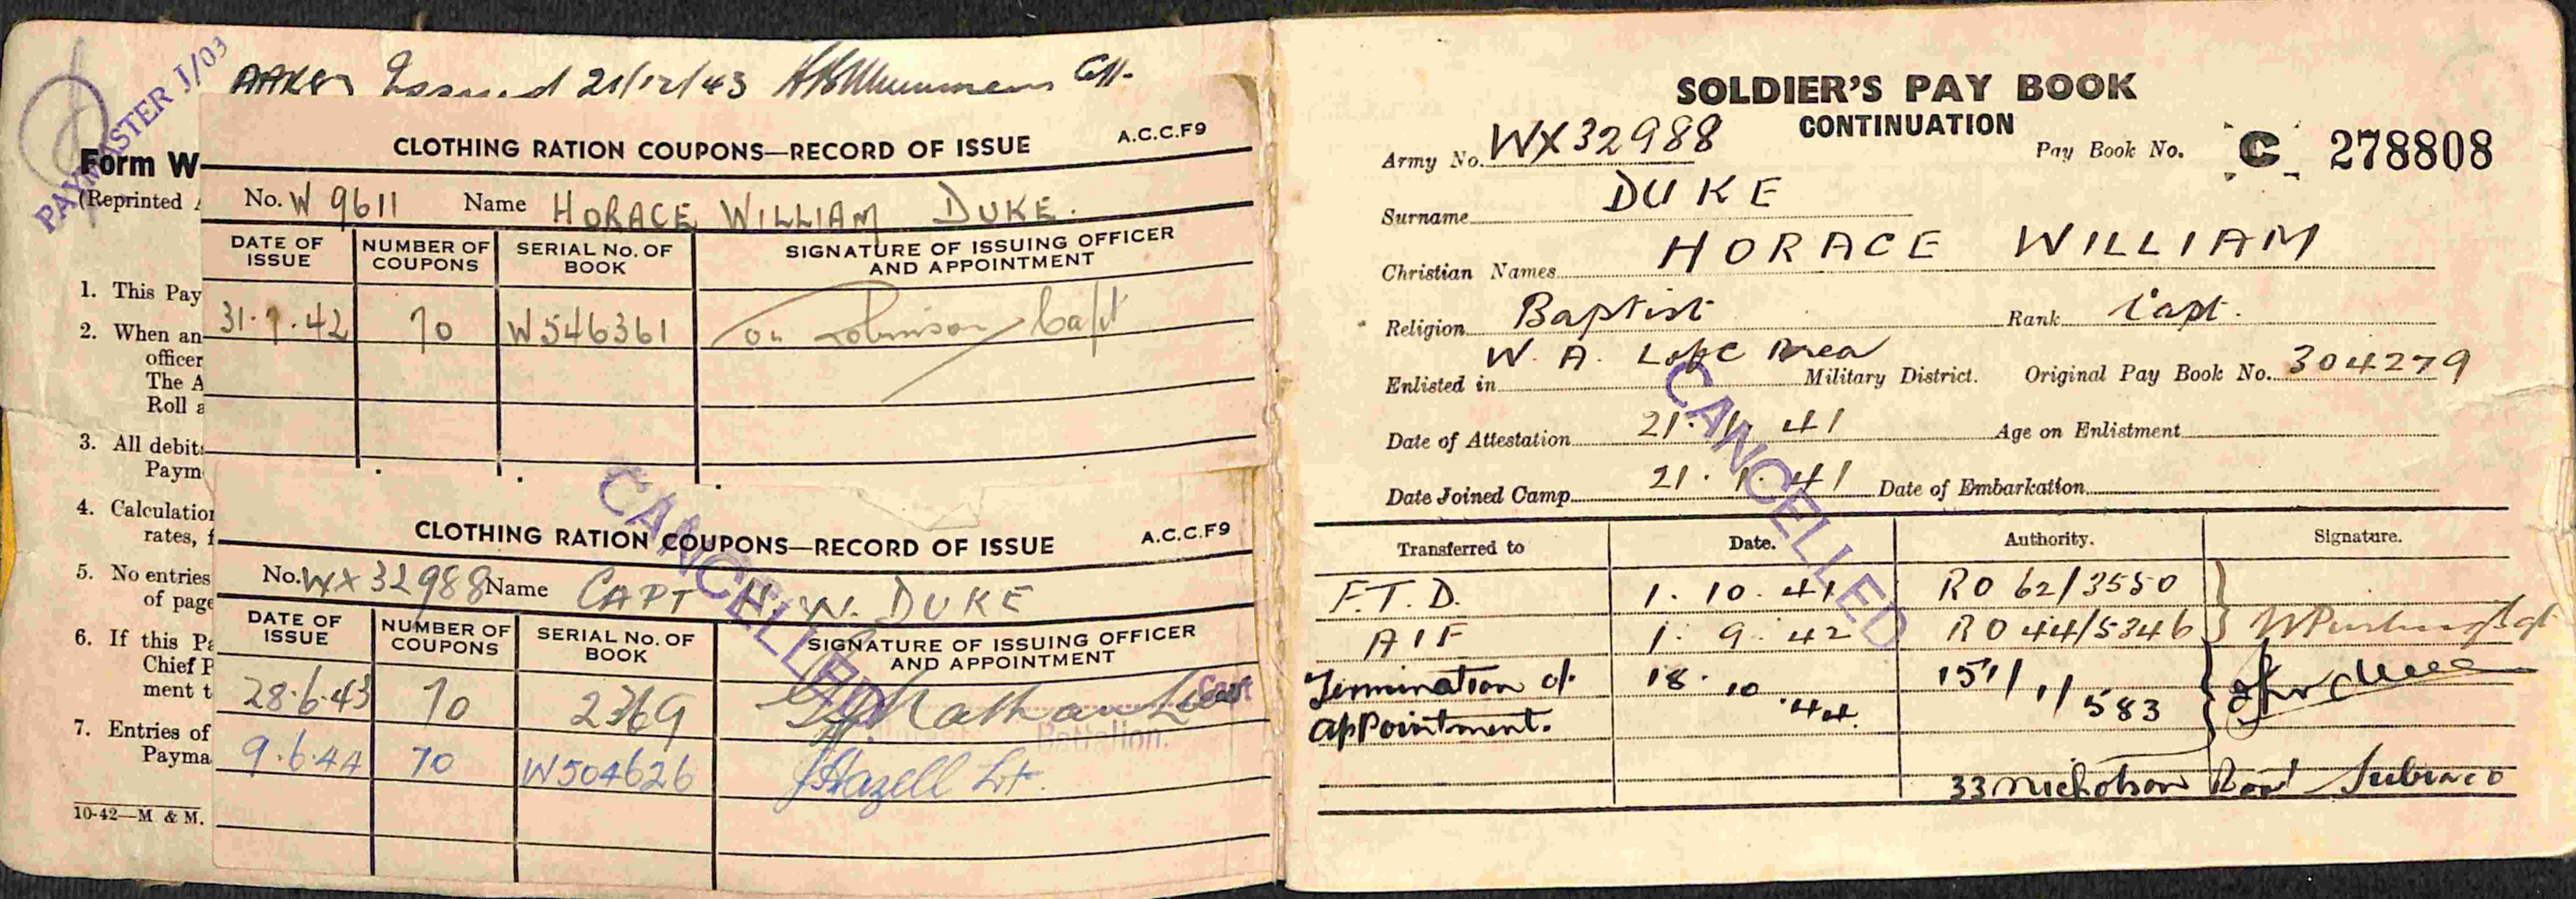 PAYMASTER 1/03
Issued 21/12/43
Form W
(Reprinted
CLOTHING RATION COUPONS—RECORD OF ISSUE A.C.C.F9
No. W 9611 Name HORACE WILLIAM DUKE.
DATE OF ISSUE NUMBER OF COUPONS SERIAL No. OF BOOK SIGNATURE OF ISSUING OFFICER AND APPOINTMENT
31. .42 70 W546361 Robinson Capt
1. This Pay
2. When an
officer
The A
Roll a
3. All debit
Paym
4. Calculation
rates, f
5. No entries
of page
6. If this Pa
Chief P
ment t
7. Entries of
Payma
10-42—M & M.
CANCELLED
CLOTHING RATION COUPONS—RECORD OF ISSUE A.C.C.F9
No. WX32988 Name CAPT H. W. DUKE
DATE OF ISSUE NUMBER OF COUPONS SERIAL No. OF BOOK SIGNATURE OF ISSUING OFFICER AND APPOINTMENT
28.6.43 70 2369 Capt
Battalion.
9.6.44 70 W504626 Hazell Lt.
SOLDIER'S PAY BOOK
CONTINUATION
Army No. WX32988 Pay Book No. C 278808
Surname DUKE
Christian Names HORACE WILLIAM
Religion Baptist Rank Capt.
Enlisted in W. A. L of C Area Military District. Original Pay Book No. 304279
Date of Attestation 21. 1. 41 Age on Enlistment
Date Joined Camp 21. 1. 41 Date of Embarkation
CANCELLED
Transferred to Date. Authority. Signature.
F.T.D. 1. 10. 41 RO 62/3550
AIF 1. 9. 42 RO 44/5346
Termination of 18. 10 .44. 151/1/583
appointment.
33 Nicholson Road Subiaco